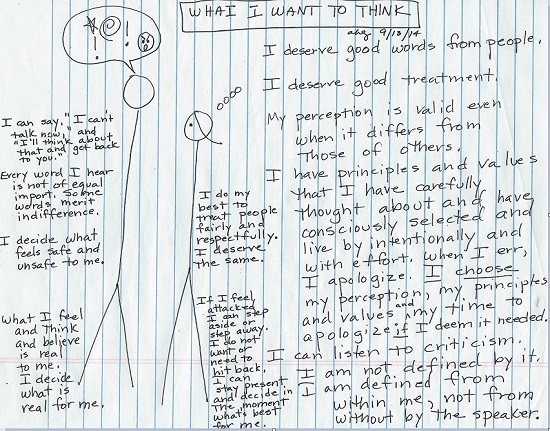 WHAT I WANT TO THINK
ahg 9/13/14
I deserve good words from people.
I deserve good treatment.
My perception is valid even
when it differs from
those of others.
I have principles and values
that I have carefully
thought about and have
consciously selected and
live by intentionally and
with effort. When I err,
I apologize. I choose
my perception, my principles
and values and my time to
apologize if I deem it needed.
I can listen to criticism.
I am not defined by it.
I am defined from
within me, not from
without by the speaker.
! !
I can say, "I can't
talk now," and
"I'll think about
that and get back
to you."
Every word I hear
is not of equal
import. Some
words merit
indifference.
I decide what
feels safe and
unsafe to me.
What I feel
and think
and believe
is real
to me.
I decide
what is
real for me.
I do my
best to
treat people
fairly and
respectfully.
I deserve
the same.
If I feel
attacked
I can step
aside or
step away.
I do not
want or
need to
hit back.
I can
stay present
and decide in
the moment
what's best
for me.